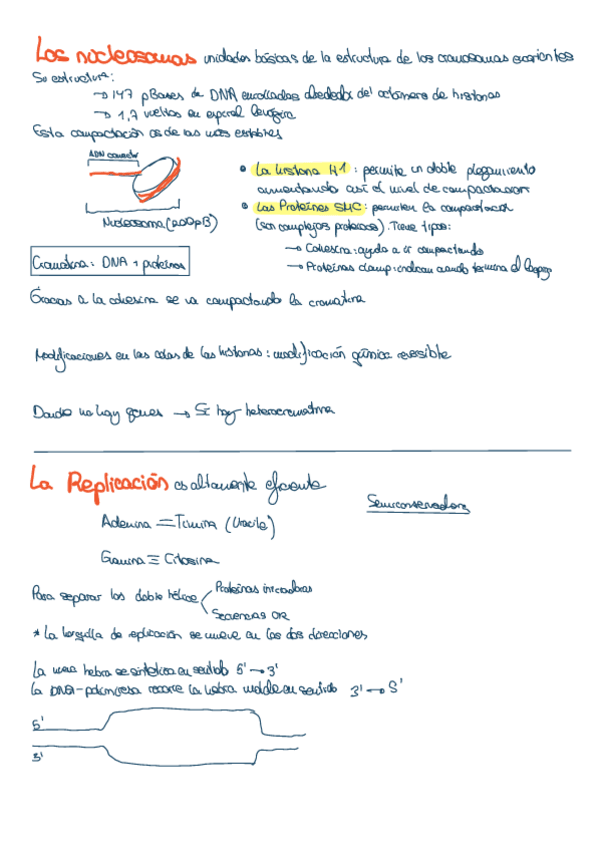 Los nucleosomas unidades básicas de la estructura de los cromosomas eucariontes
Su estructura:
→ 147 pBases de DNA enrolladas alrededor del octámero de histonas
→ 1,7 vueltas en espiral levógira
Esta compactación es de las más estables
ADN conector
Nucleosoma (200pB)
• La histona H1: permite un doble plegamiento
aumentando así el nivel de compactacion
• Las Proteínas SMC: permiten la compactación
(son complejos proteicos). Tiene tipos:
→ Cohesina: ayuda a ir compactando
→ Proteínas clamp: indican cuando termina el
Cromatina: DNA + proteínas
Gracias a la cohesina se va compactando la cromatina
Modificaciones en las colas de las histonas: modificación química reversible
Donde no hay genes → Si hay heterocromatina
La Replicación es altamente eficiente
Semiconservadora
Adenina = Timina (Uracilo)
Guanina ≡ Citosina
Para separar las doble hélice
Proteínas iniciadoras
Secuencias ORI
* La horquilla de replicación se mueve en las dos direcciones
La nueva hebra se sintetiza en sentido 5' → 3'
La DNA-polimerasa recorre la hebra molde en sentido 3' → 5'
5'
3'